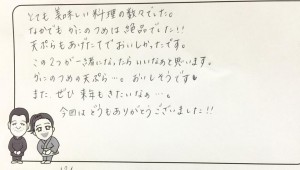 とても美味しい料理の数々でした。
なかでもかにのつめは絶品でした!!
天ぷらもあげたてでおいしかったです。
この2つが一緒になったらいいなぁと思います。
かにのつめの天ぷら…。おいしそうです♥
また ぜひ 来年もきたいなぁ…。
今回は どうもありがとうございました!!